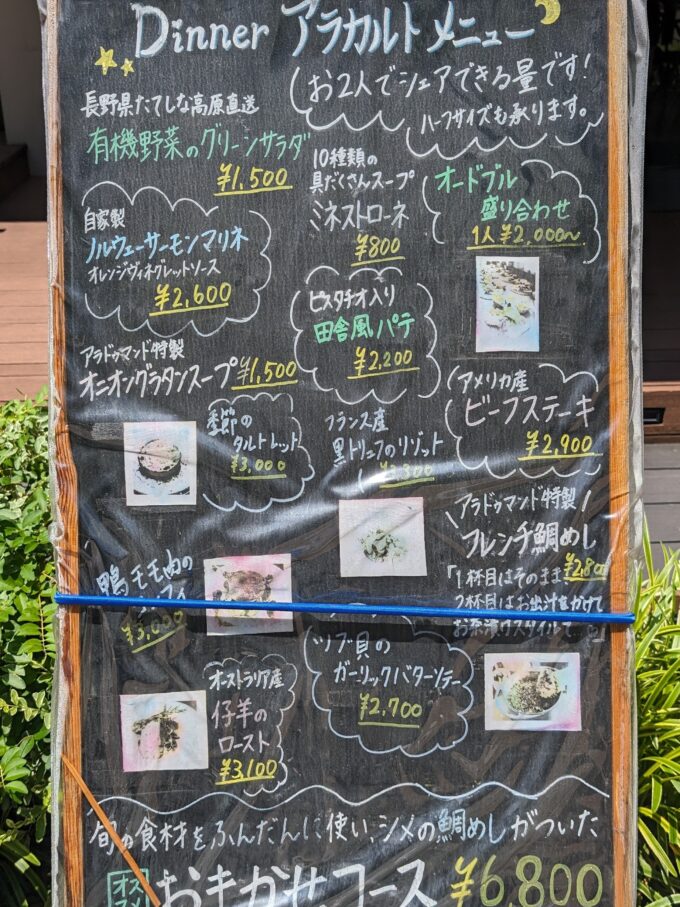 Dinner アラカルトメニュー
お2人でシェアできる量です!
ハーフサイズも承ります。
長野県たてしな高原直送
有機野菜のグリーンサラダ
¥1,500
10種類の
具だくさんスープ
ミネストローネ
¥800
オードブル
盛り合わせ
1人 ¥2,000~
自家製
ノルウェーサーモンマリネ
オレンジヴィネグレットソース
¥2,600
ピスタチオ入り
田舎風パテ
¥2,200
アラドゥマンド特製
オニオングラタンスープ ¥1,500
アメリカ産
ビーフステーキ
¥2,900
季節の
タルトレット
¥3,000
フランス産
黒トリュフのリゾット
アラドゥマンド特製
フレンチ鯛めし
「1杯目はそのまま
2杯目はお出汁をかけて
お茶漬けスタイルで
鴨モモ肉の
¥3,000
ツブ貝の
ガーリックバターソテー
¥2,700
オーストラリア産
仔羊の
ロースト
¥3,100
旬の食材をふんだんに使い、シメの鯛めしがついた
オススメ おまかせコース ¥6,800